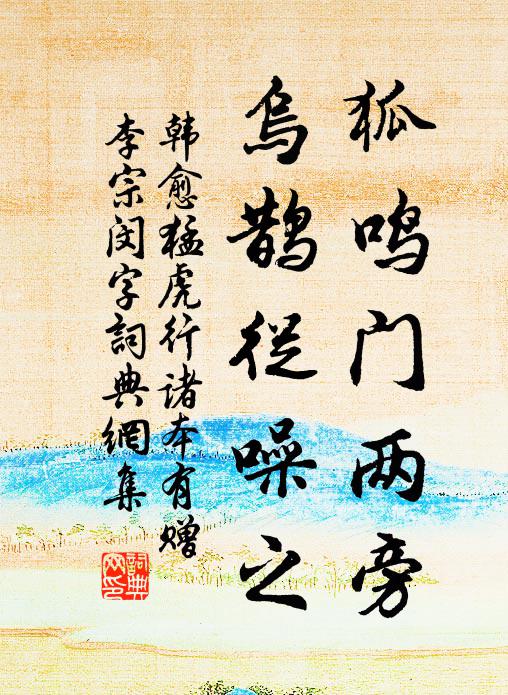 狐鸣门两旁
乌鹊從噪之
韩愈猛虎行诸本有赠
李宗闵字詞典網集
詞典
网印